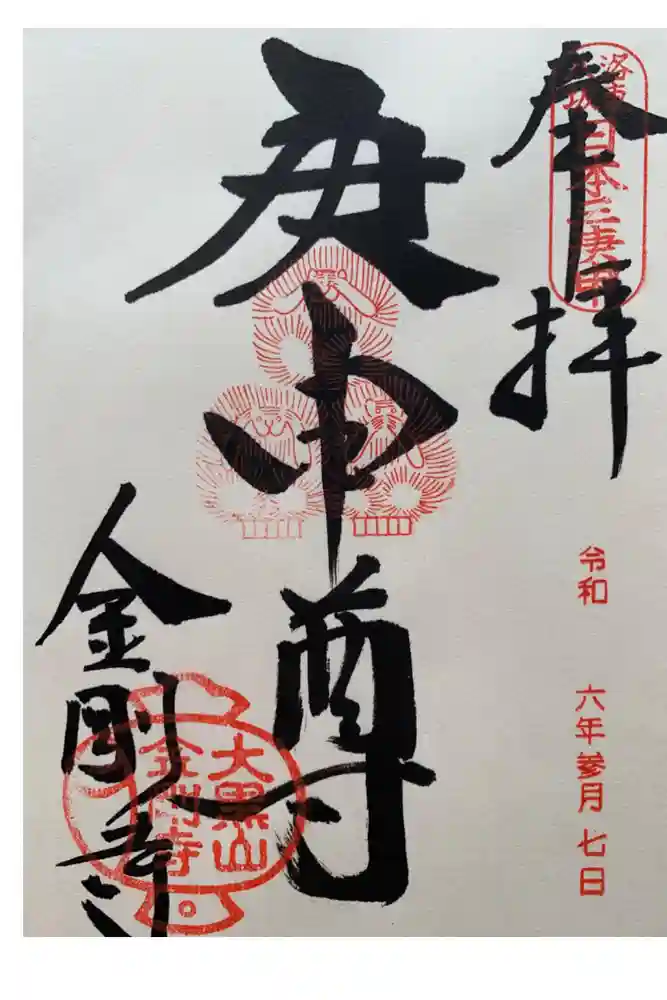 奉拝
洛東粟田口 日本三庚申
令和 六年参月七日
庚申尊
大黒山
金剛寺
金剛寺